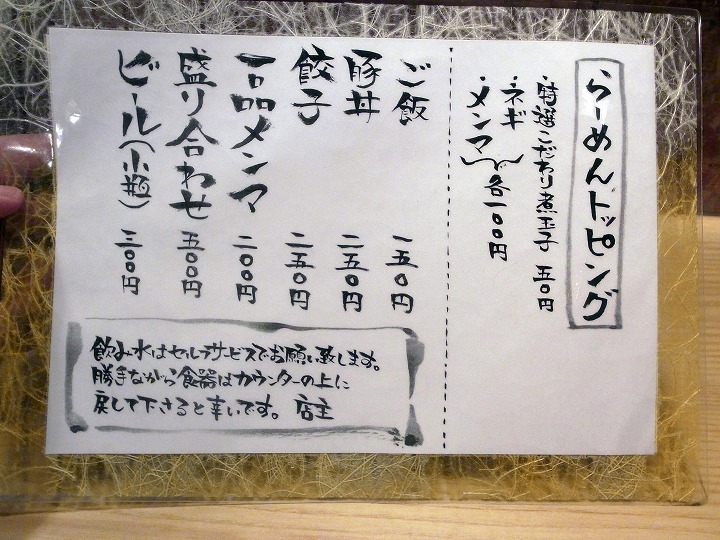 らーめんトッピング
・特選こだわり煮玉子 五〇円
・ネギ
・メンマ 各一〇〇円
ご飯 一五〇円
豚丼 二五〇円
餃子 二五〇円
一品メンマ 二〇〇円
盛り合わせ 五〇〇円
ビール(小瓶) 三〇〇円
飲み水はセルフサービスでお願い致します。
勝手ながら食器はカウンターの上に
戻して下さると幸いです。 店主